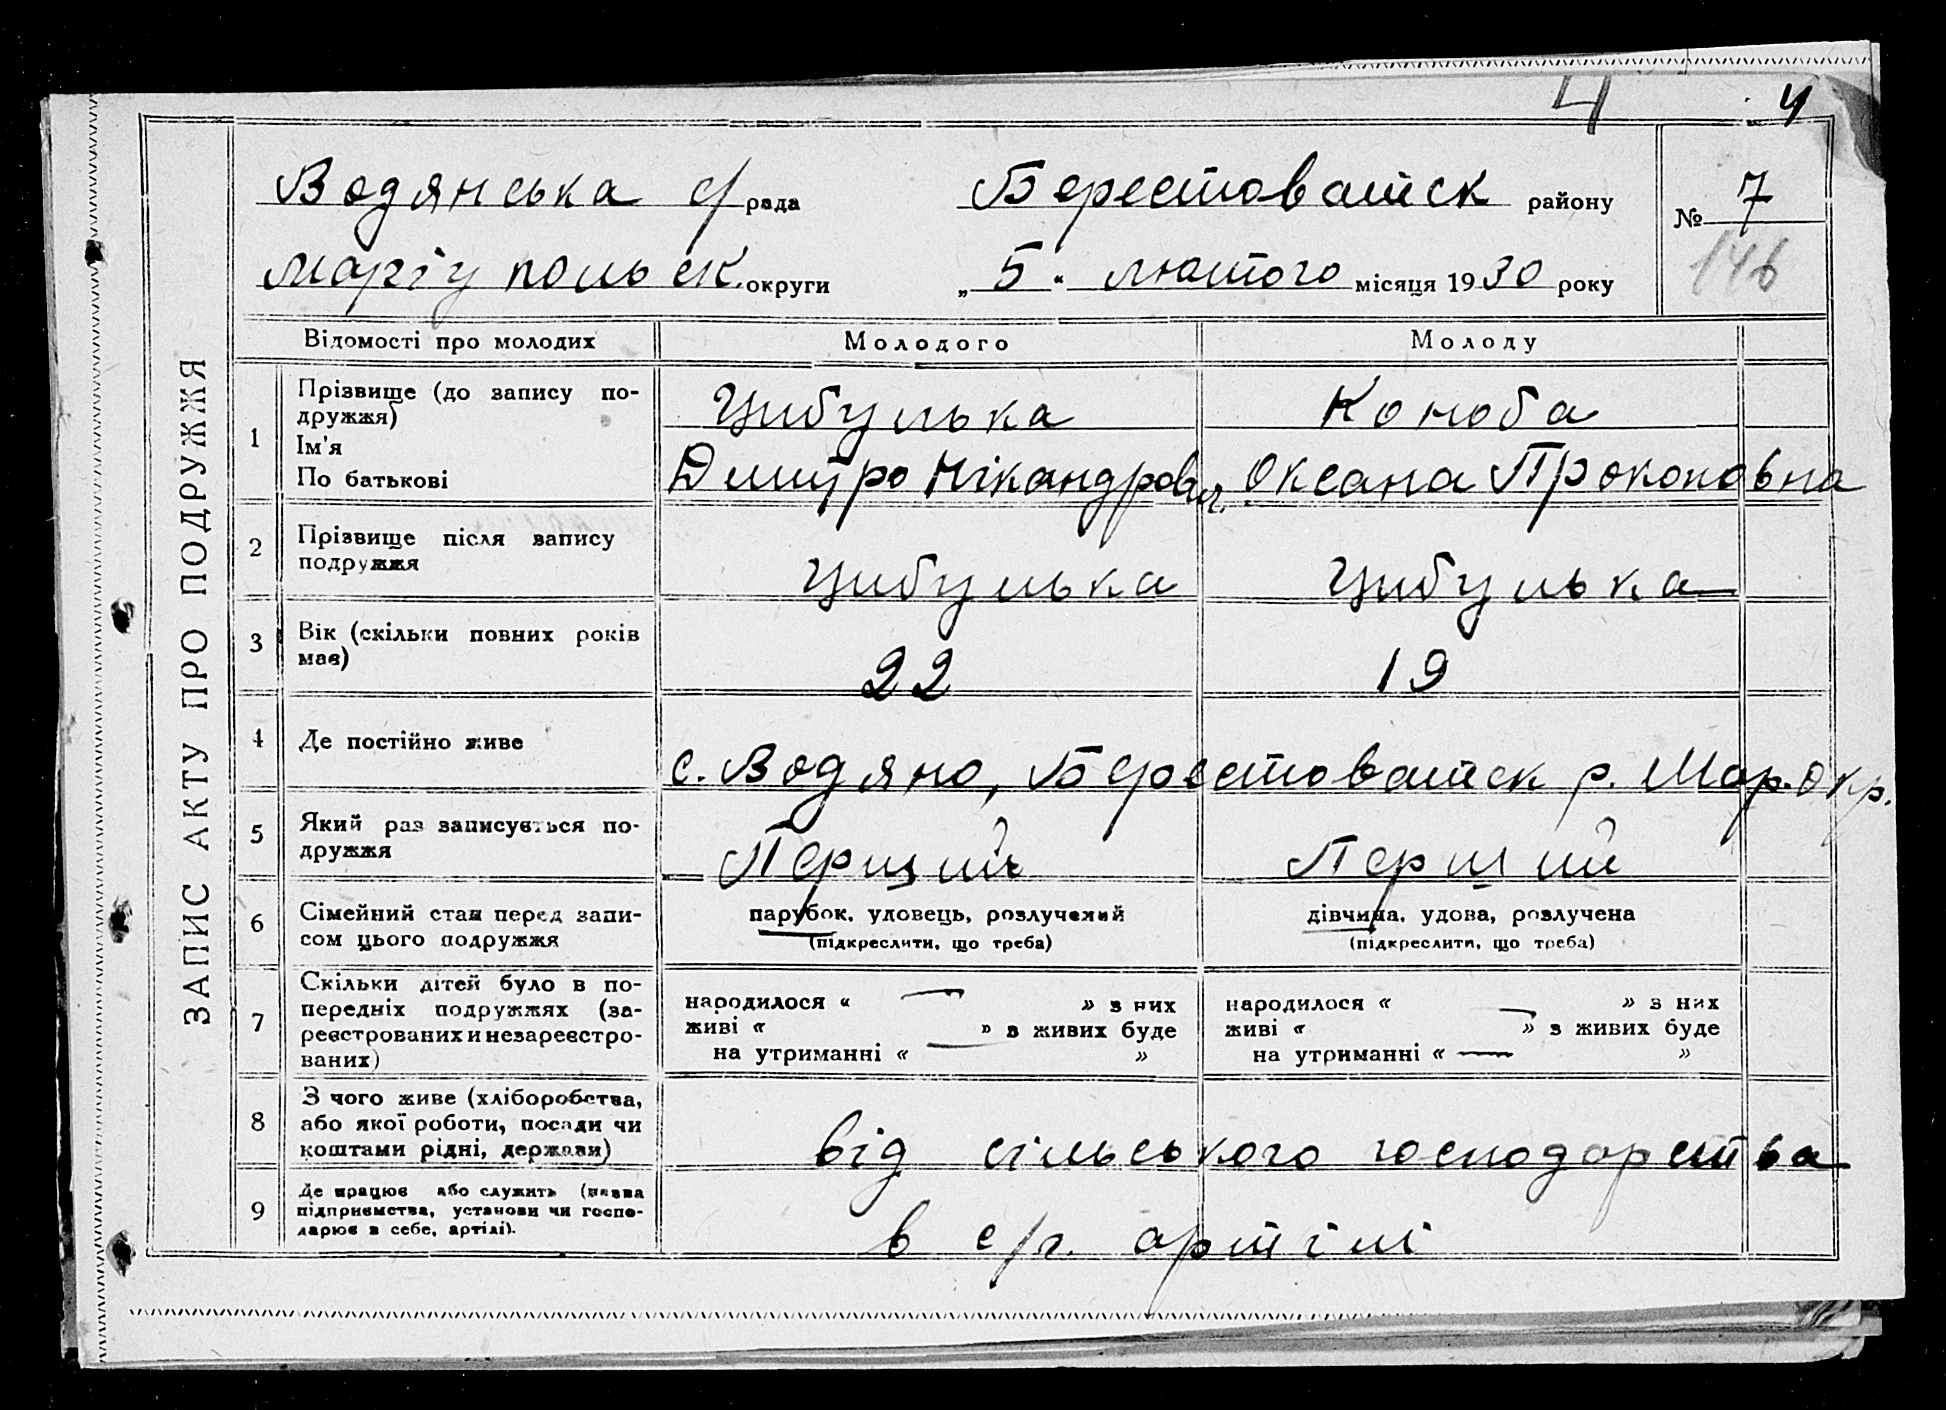 4 4
Водянська с/рада Берестоватск району № 7
Маріупольск. округи „5“ лютого місяця 1930 року 146
ЗАПИС АКТУ ПРО ПОДРУЖЖЯ
Відомості про молодих Молодого Молоду
1 Прізвище (до запису по-
дружжя) Цибулька Коноба
Ім'я
По батькові Дмитро Нікандрович. Оксана Прокоповна
2 Прізвище після запису
подружжя Цибулька Цибулька
3 Вік (скільки повних років
має) 22 19
4 Де постійно живе
с. Водяно, Берестоватск р. Мар. Окр.
5 Який раз записується по-
дружжя Перший Перший
6 Сімейний стан перед запи- парубок, удовець, розлучений дівчина, удова, розлучена
сом цього подружжя (підкреслити, що треба) (підкреслити, що треба)
7 Скільки дітей було в по-
передніх подружжях (за- народилося « — » з них народилося « — » з них
реєстрованих и незареєстро- живі « » з живих буде живі « » з живих буде
ваних) на утриманні « — » на утриманні « — »
8 З чого живе (хліборобства,
або якої роботи, посади чи
коштами рідні, держави) від сільського господарства
9 Де працює або служить (назва
підприємства, установи чи госпо-
дарює в себе, артілі). в с/г. артілі